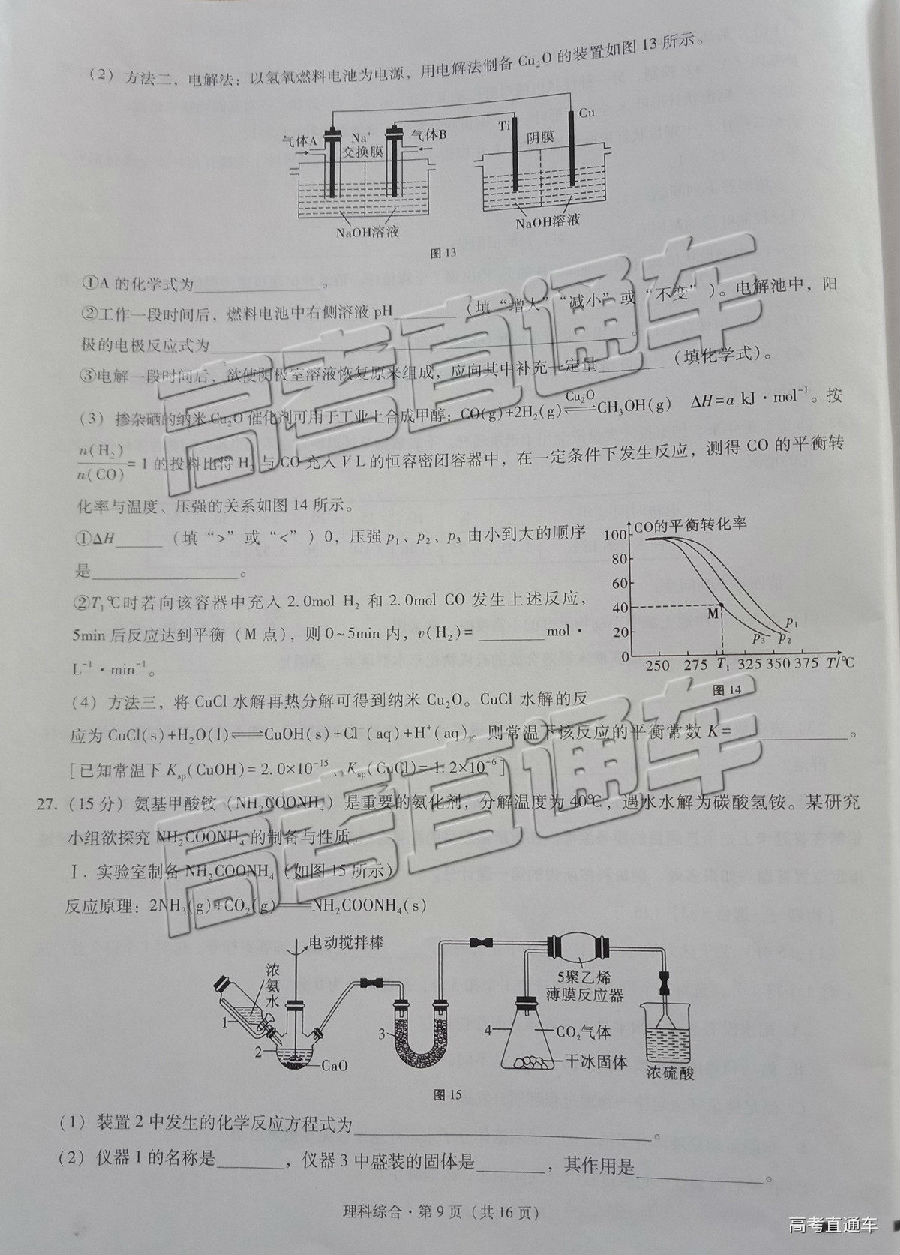 (2) 方法二、电解法：以氢氧燃料电池为电源，用电解法制备 Cu₂O 的装置如图 13 所示。
气体A
Na⁺
交换膜
气体B
Ti
阴膜
Cu
NaOH溶液
NaOH溶液
图 13
①A 的化学式为____________。
②工作一段时间后，燃料电池中右侧溶液 pH______（填“增大”“减小”或“不变”）。电解池中，阳
极的电极反应式为____________。
③电解一段时间后，欲使阴极室溶液恢复原来组成，应向其中补充一定量______（填化学式）。
(3) 掺杂硒的纳米 Cu₂O 催化剂可用于工业上合成甲醇：CO(g)+2H₂(g)⇌CH₃OH(g) ΔH=a kJ·mol⁻¹。按
Cu₂O
n(H₂)/n(CO)=1 的投料比将 H₂ 与 CO 充入 V L 的恒容密闭容器中，在一定条件下发生反应，测得 CO 的平衡转
化率与温度、压强的关系如图 14 所示。
①ΔH____（填“>”或“<”）0，压强 p₁、p₂、p₃ 由小到大的顺序
是____________。
②T₁℃时若向该容器中充入 2.0mol H₂ 和 2.0mol CO 发生上述反应，
5min 后反应达到平衡（M 点），则 0~5min 内，v(H₂)=______mol·
L⁻¹·min⁻¹。
CO的平衡转化率
100
80
60
40
20
0
M
p₃
p₂
p₁
250 275 T₁ 325 350 375 T/℃
图 14
(4) 方法三、将 CuCl 水解再热分解可得到纳米 Cu₂O。CuCl 水解的反
应为 CuCl(s)+H₂O(l)⇌CuOH(s)+Cl⁻(aq)+H⁺(aq)。则常温下该反应的平衡常数 K=____________。
[已知常温下 Ksp(CuOH)=2.0×10⁻¹⁵、Ksp(CuCl)=1.2×10⁻⁶]
27.（15 分）氨基甲酸铵（NH₂COONH₄）是重要的氨化剂，分解温度为 40℃，遇水水解为碳酸氢铵。某研究
小组欲探究 NH₂COONH₄ 的制备与性质。
Ⅰ. 实验室制备 NH₂COONH₄（如图 15 所示）
反应原理：2NH₃(g)+CO₂(g)═NH₂COONH₄(s)
电动搅拌棒
浓氨水
1
2
CaO
3
4
5聚乙烯
薄膜反应器
CO₂气体
干冰固体
浓硫酸
图 15
(1) 装置 2 中发生的化学反应方程式为____________。
(2) 仪器 1 的名称是______，仪器 3 中盛装的固体是______，其作用是____________。
理科综合·第 9 页（共 16 页）
高考直通车
高考直通车
高考直通车